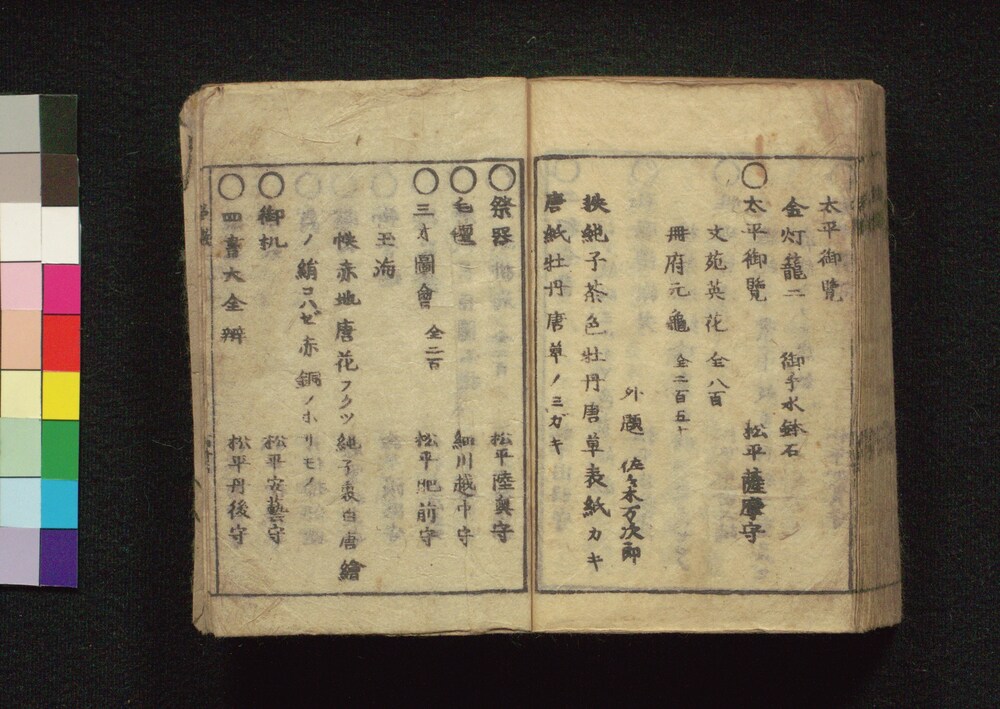 太平御覽
金灯籠二 御手水鉢石
○太平御覽 松平薩摩守
文苑英花 全八百
冊府元龜 全二百五十
外題 佐々木万次郎
帙純子茶色牡丹唐草表紙カキ
唐紙牡丹唐草ノミガキ
○祭器 松平陸奥守
○毛氊 細川越中守
○三才圖會 全二百 松平肥前守
玉海
帙赤地唐花フクツ純子裏白唐繪
ノ絹コハゼ赤銅ノホリモノ
○御机 松平安藝守
○四書大全辨 松平丹後守